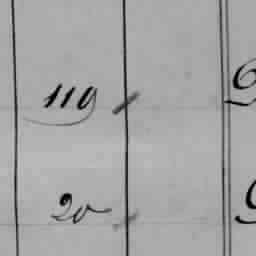 119
20